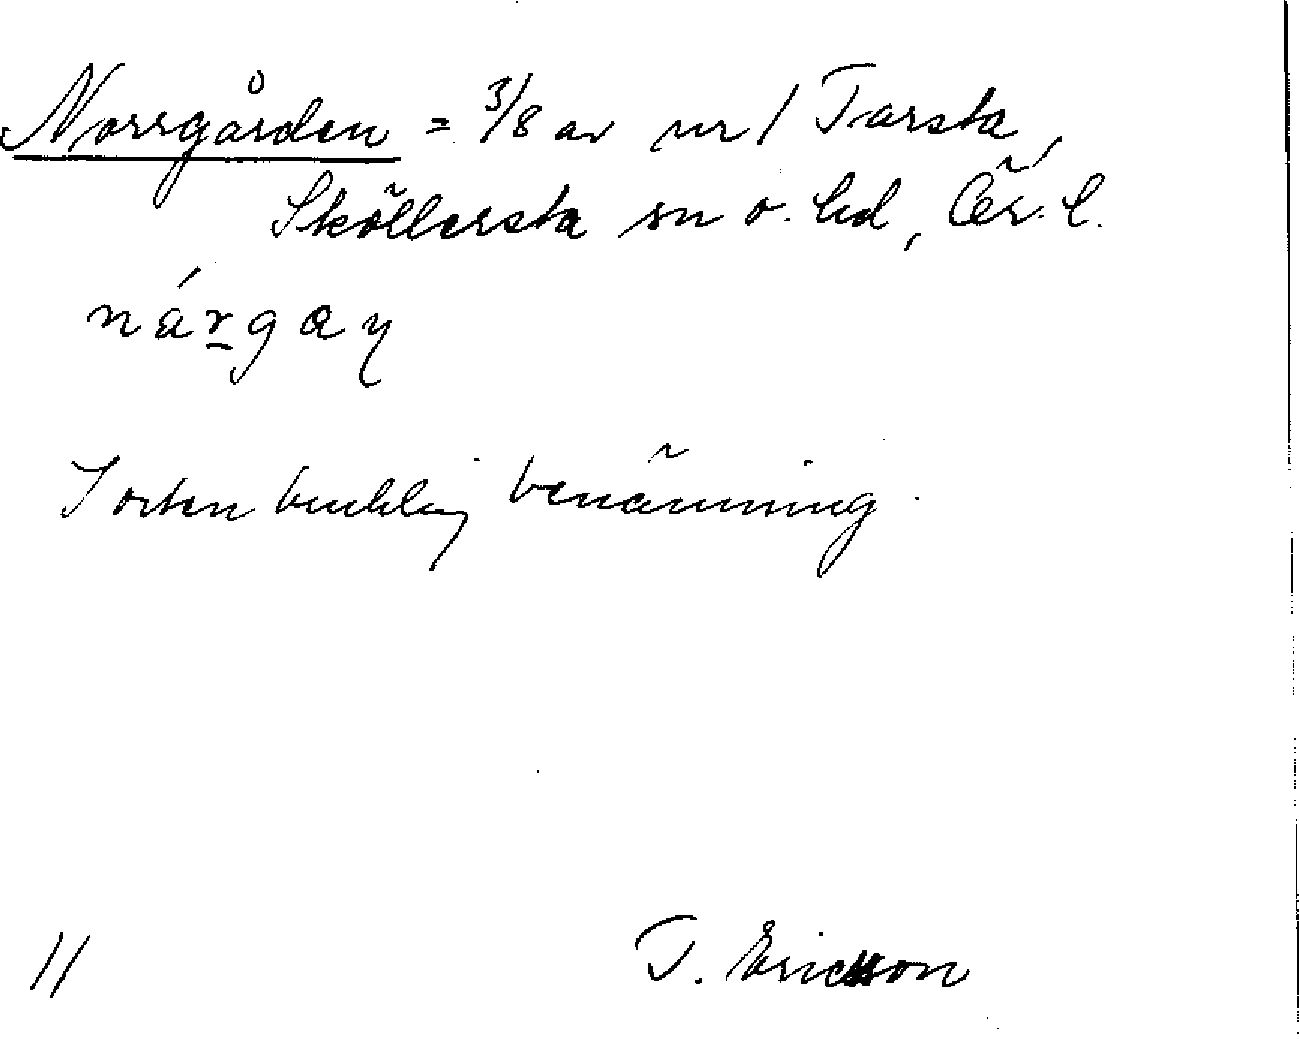 Norrgården = 3/8 av nr 1 Tarsta,
Sköllersta sn o. hd, Ör. l.
I orten bruklig benämning.
11 T. Ericsson